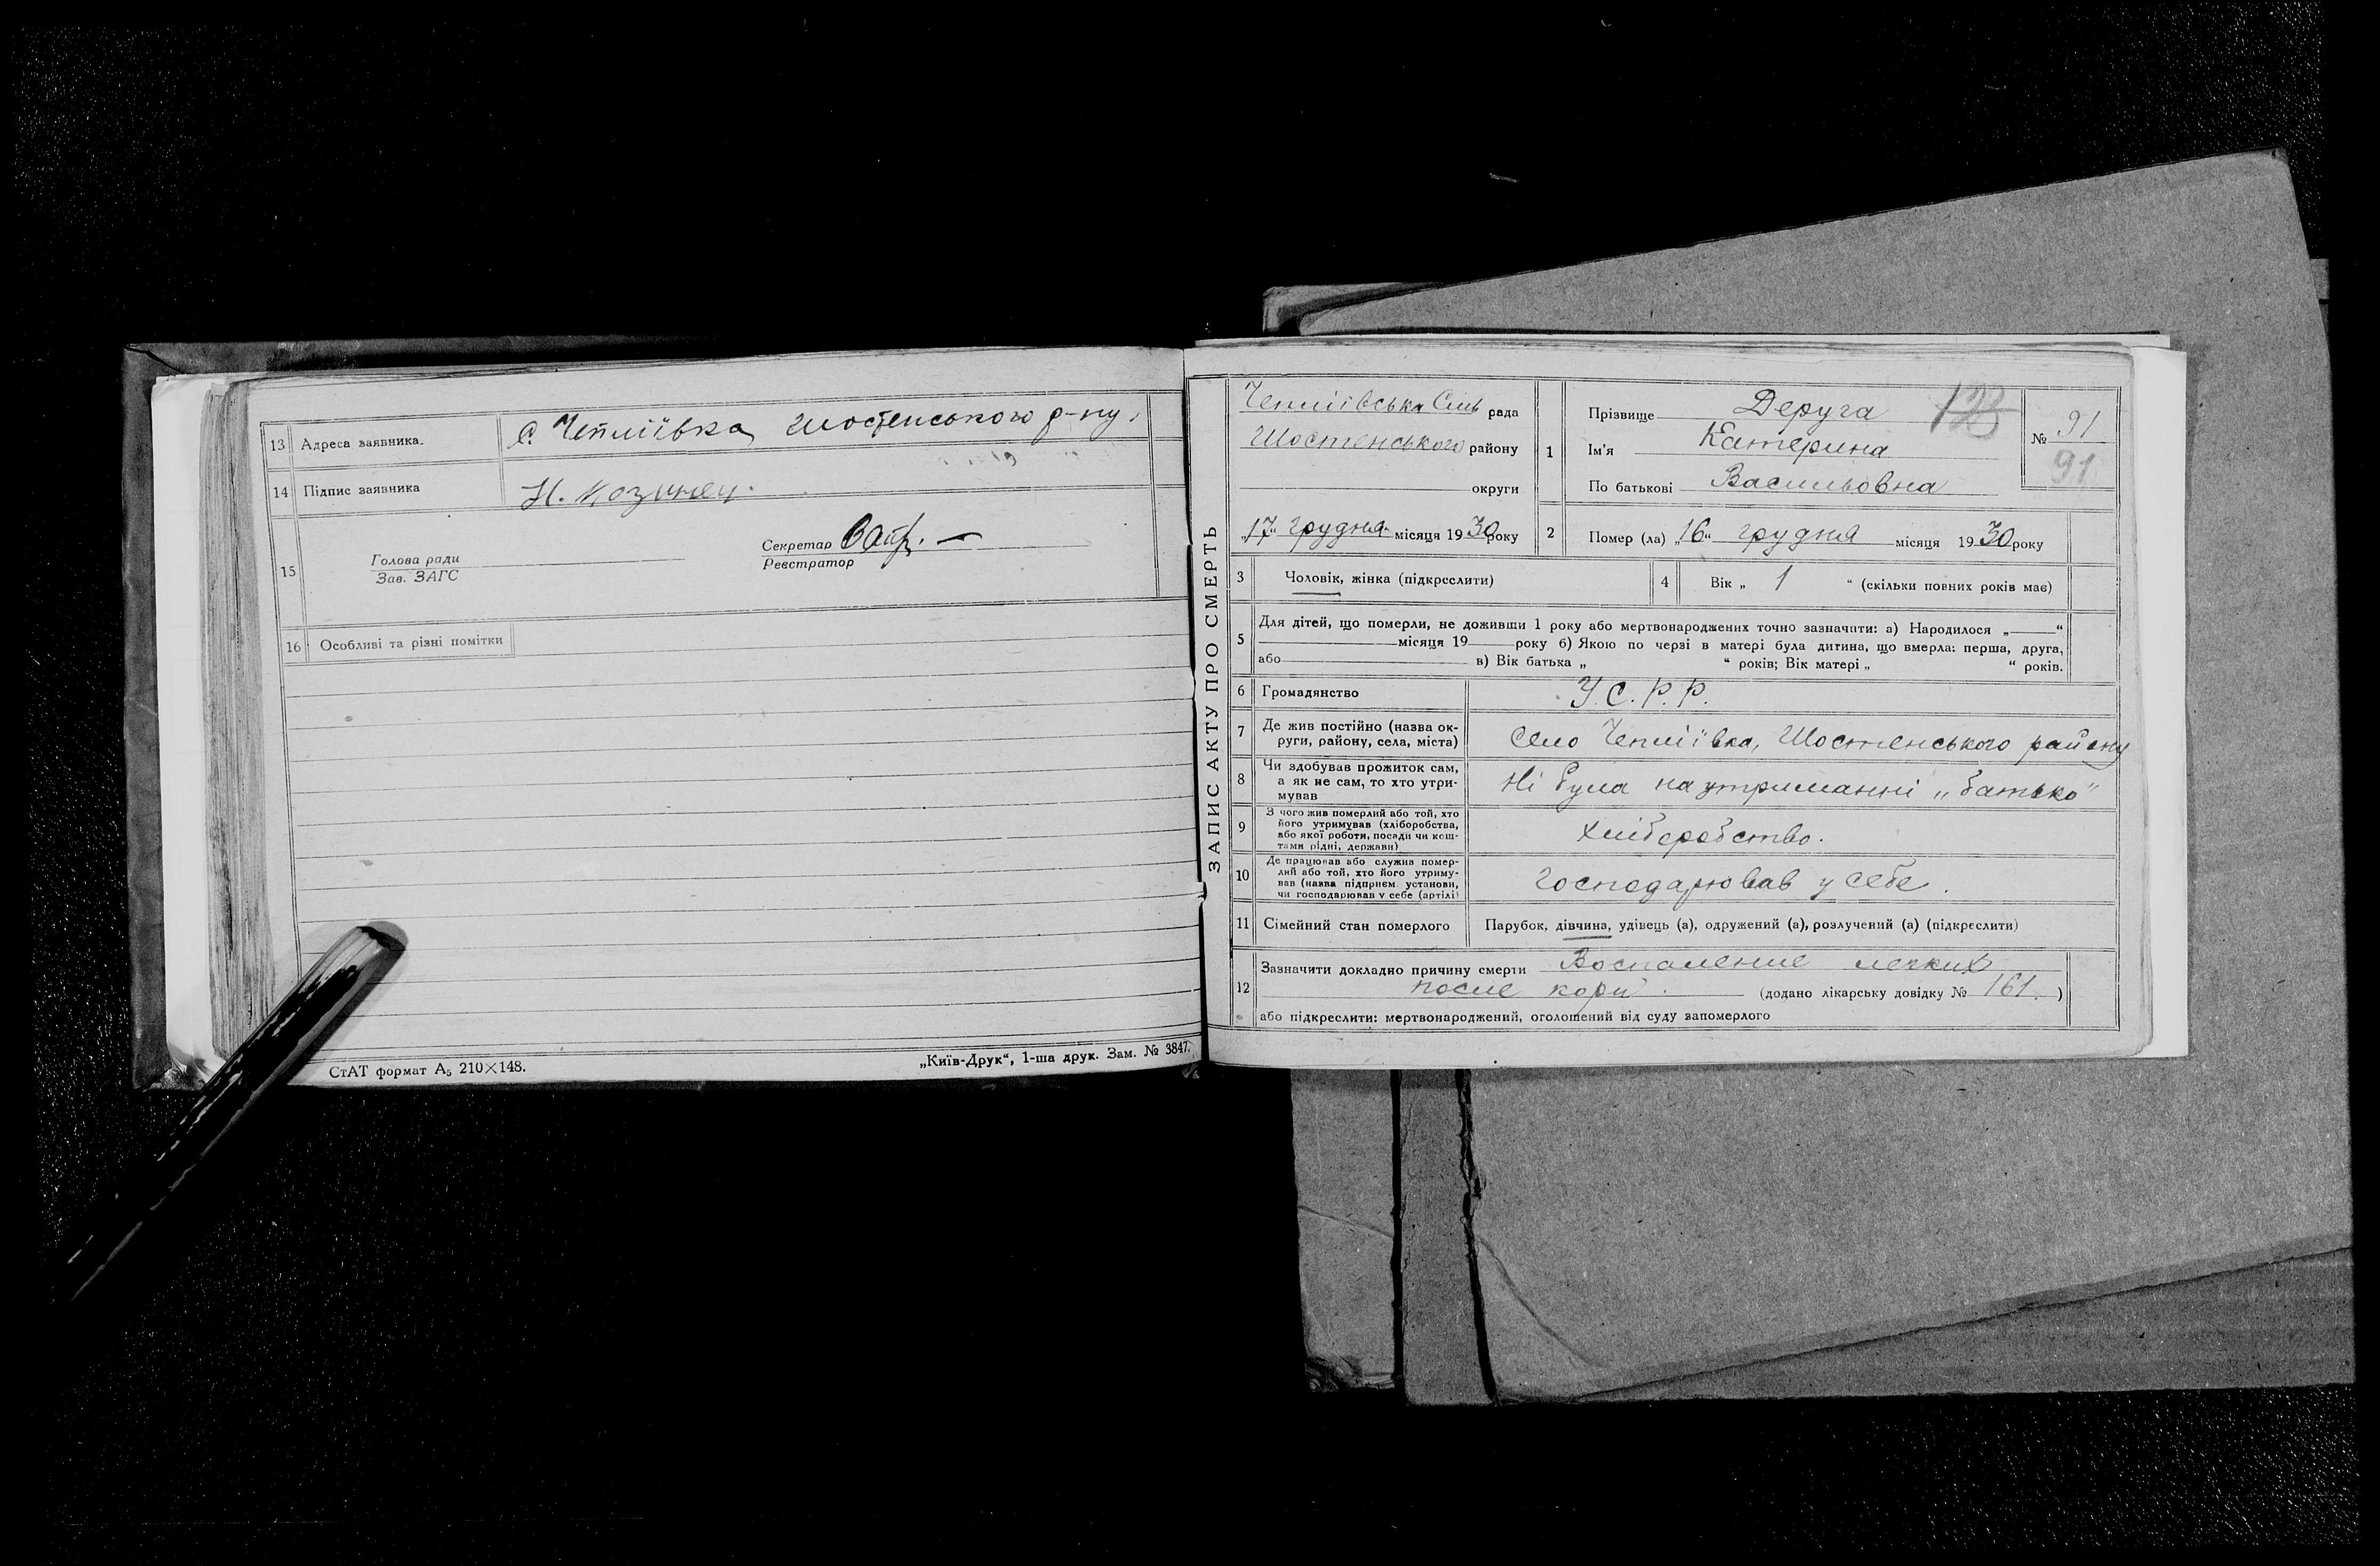 13 Адреса заявника. С. Чепліївка, Шостенського р-ну,
14 Підпис заявника Н. Козинец.
15 Голова ради
Зав. ЗАГС
Секретар
Реєстратор
16 Особливі та різні помітки
СтАТ формат А5 210×148.
„Київ-Друк“, 1-ша друк. Зам. № 3847.
ЗАПИС АКТУ ПРО СМЕРТЬ
Чепліївська Сіль рада
Шостенського району
округи
„17“ грудня місяця 1930 року
1 Прізвище Деруга 123
Ім'я Катерина
По батькові Васильовна
№ 91
91
2 Помер (ла) „16“ грудня місяця 1930 року
3 Чоловік, жінка (підкреслити)
4 Вік „ 1 “ (скільки повних років має)
5 Для дітей, що померли, не доживши 1 року або мертвонароджених точно зазначити: а) Народилося „ “
місяця 19 року б) Якою по черзі в матері була дитина, що вмерла: перша, друга,
або в) Вік батька „ “ років; Вік матері „ “ років.
6 Громадянство У.С.Р.Р.
7 Де жив постійно (назва ок-
руги, району, села, міста) Село Чепліївка, Шостенського району
8 Чи здобував прожиток сам,
а як не сам, то хто утри-
мував Ні була на утриманні „батько“
9 З чого жив померлий або той, хто
його утримував (хліборобства,
або якої роботи, посади чи кош-
тами рідні, держави) Хліборобство.
10 Де працював або служив помер-
лий або той, хто його утриму-
вав (назва підприєм. установи,
чи господарював у себе (артілі) Господарював у себе.
11 Сімейний стан померлого Парубок, дівчина, удівець (а), одружений (а), розлучений (а) (підкреслити)
12 Зазначити докладно причину смерти Воспаление легких
после кори. (додано лікарську довідку № 161. )
або підкреслити: мертвонароджений, оголошений від суду запомерлого